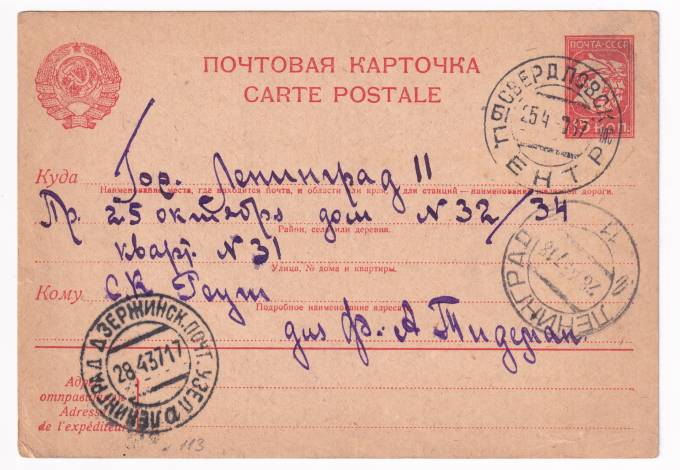 ПОЧТОВАЯ КАРТОЧКА
CARTE POSTALE
ПОЧТА-СССР
КОП.
СВЕРДЛОВСК
25 4
ЦЕНТР
Куда Гор. Ленинград 11
Наименование места, где находится почта, и области или края, а для станций — наименование железной дороги.
Пр. 25 октября дом N 32/34
Район, село или деревня.
кварт. N 31
Улица, № дома и квартиры.
Кому
Подробное наименование адресата
для ф. А.
ЛЕНИНГРАД
11
ЛЕНИНГРАД ДЗЕРЖИНСК. ПОЧТ. УЗЕЛ
28.4.37 17
Адрес
отправителя
Adresse
de l'expéditeur
113